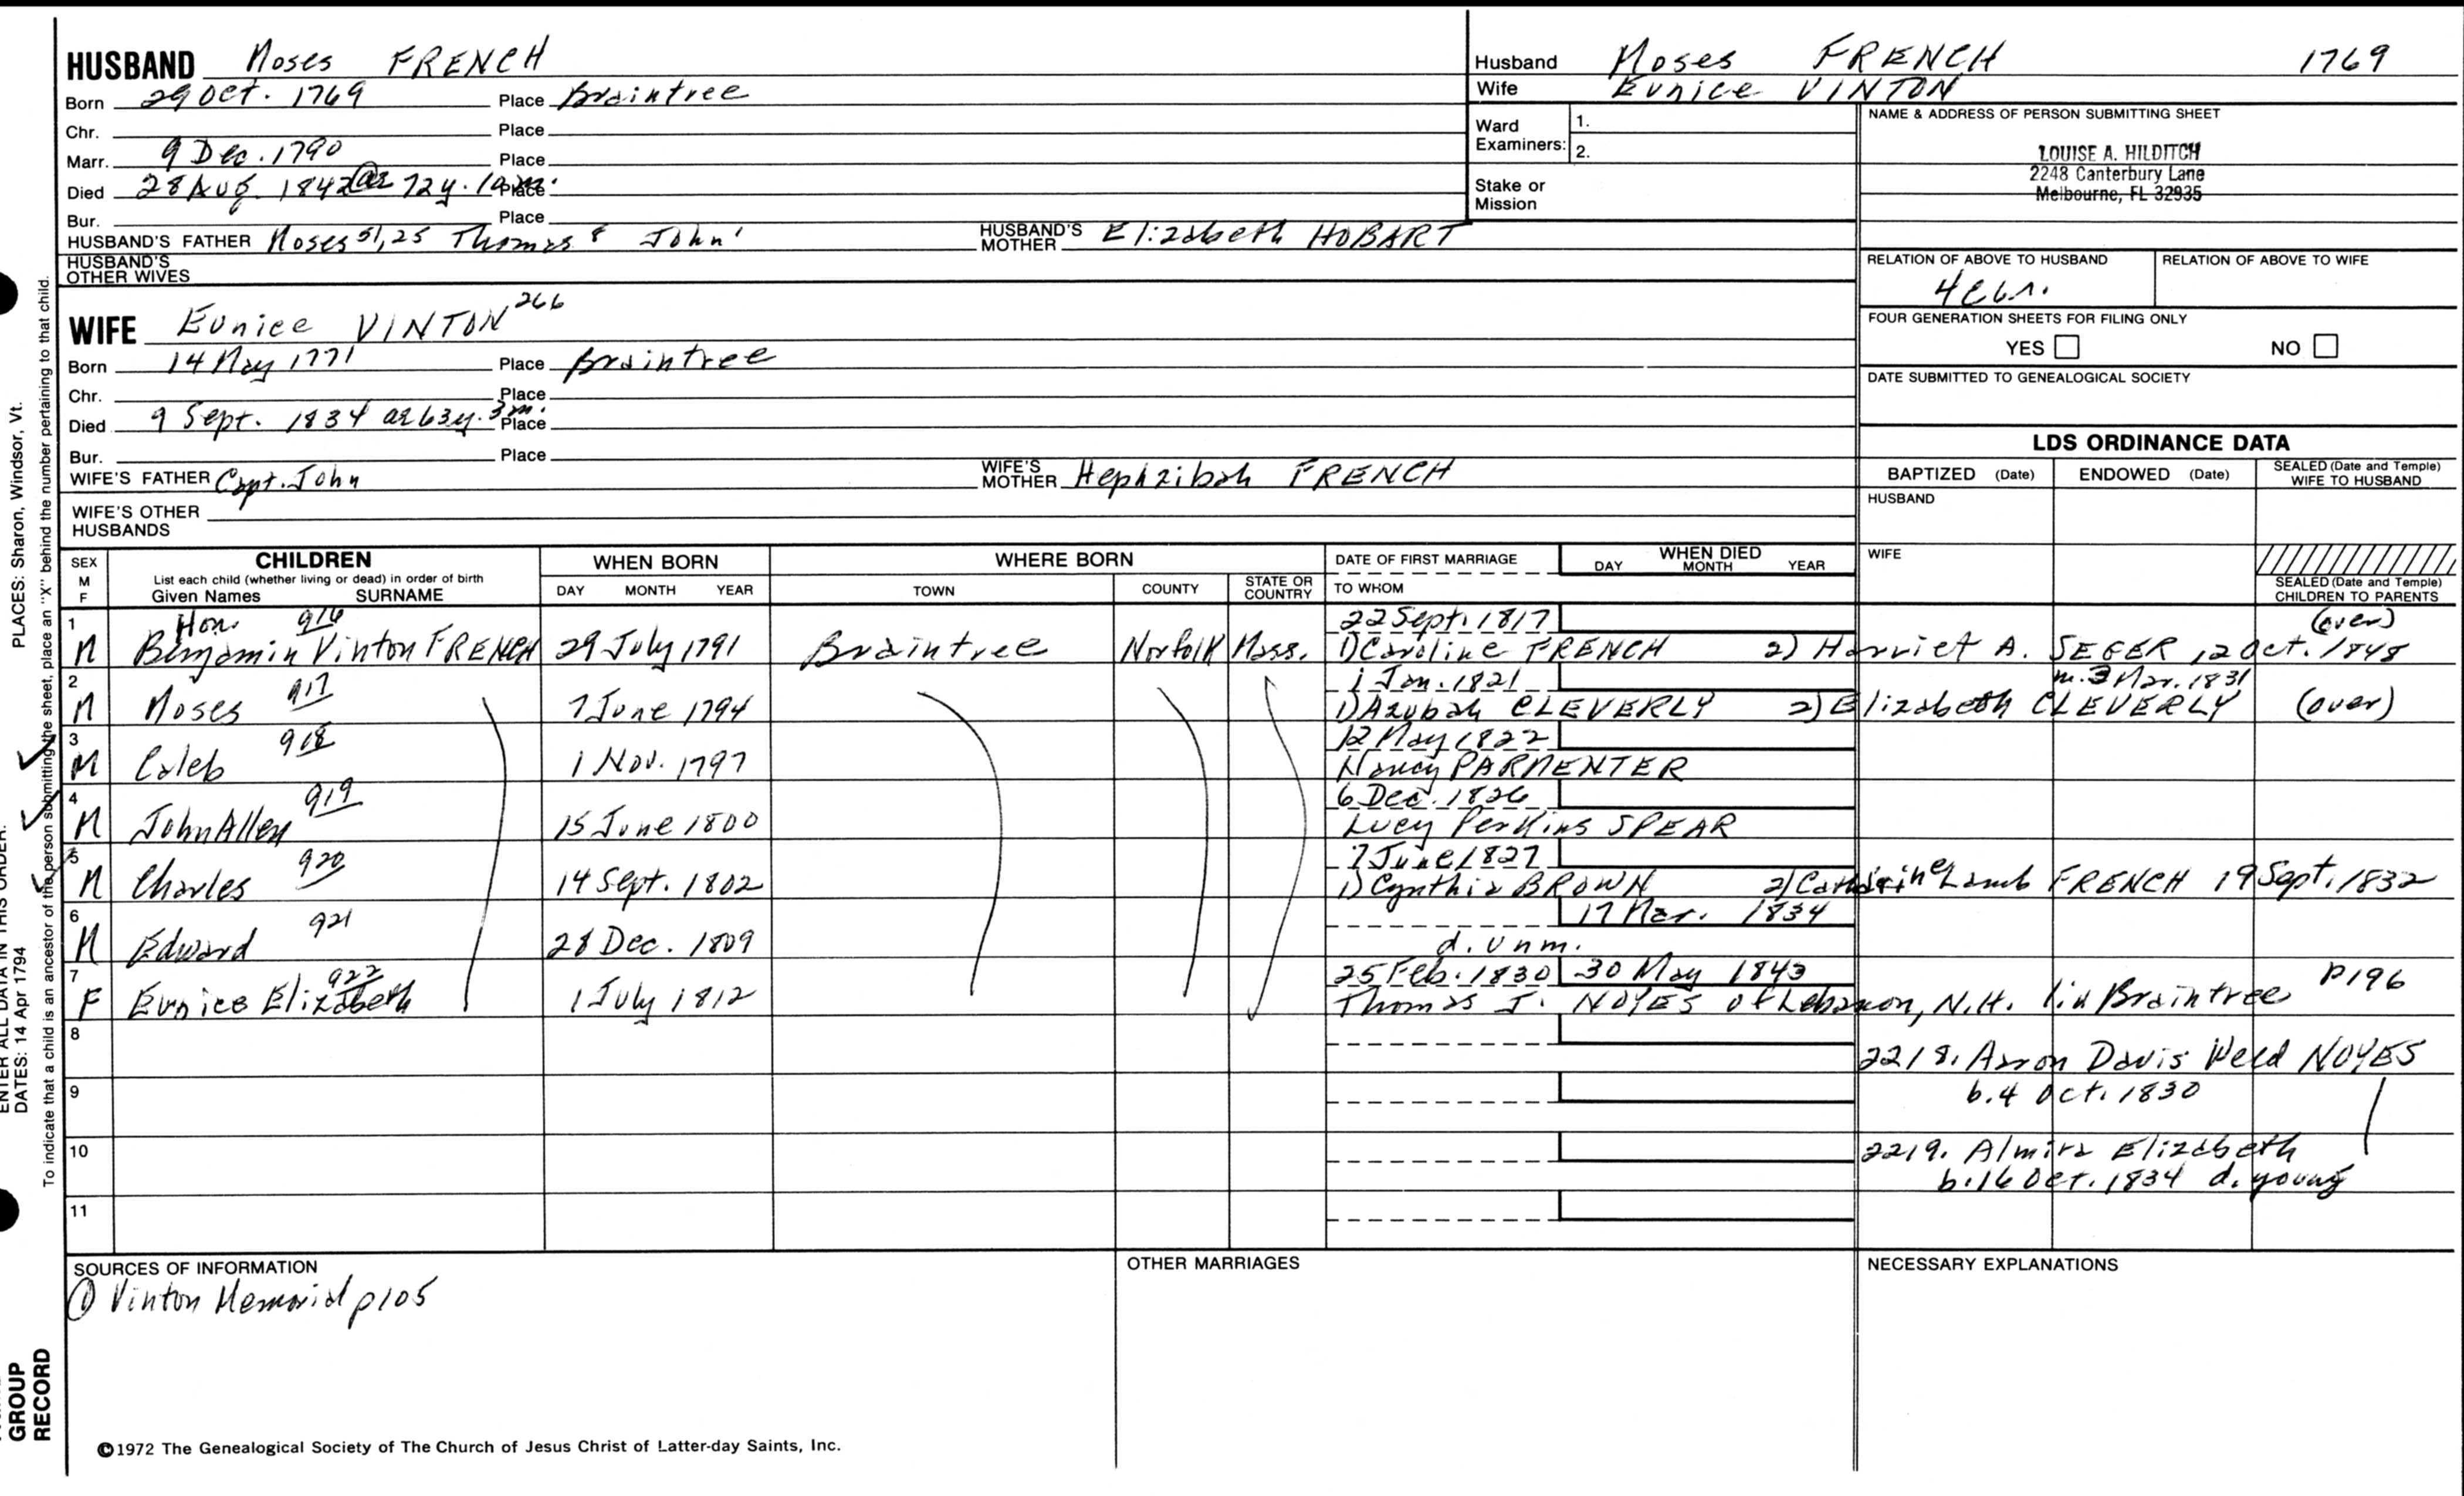 HUSBAND Moses FRENCH
Born 29 Oct. 1769 Place Braintree
Chr. Place
Marr. 9 Dec. 1790 Place
Died 28 Aug. 1842 ae 72y. 10m. Place
Bur. Place
HUSBAND'S FATHER Moses 51,25 Thomas 8 John 1 HUSBAND'S MOTHER Elizabeth HOBART
HUSBAND'S OTHER WIVES
WIFE Eunice VINTON 266
Born 14 May 1771 Place Braintree
Chr. Place
Died 9 Sept. 1834 ae 63y. 3m. Place
Bur. Place
WIFE'S FATHER Capt. John WIFE'S MOTHER Hephzibah FRENCH
WIFE'S OTHER HUSBANDS
Husband Moses FRENCH 1769
Wife Eunice VINTON
Ward Examiners: 1.
2.
Stake or Mission
NAME & ADDRESS OF PERSON SUBMITTING SHEET
LOUISE A. HILDITCH
2248 Canterbury Lane
Melbourne, FL 32935
RELATION OF ABOVE TO HUSBAND RELATION OF ABOVE TO WIFE
FOUR GENERATION SHEETS FOR FILING ONLY
YES NO
DATE SUBMITTED TO GENEALOGICAL SOCIETY
LDS ORDINANCE DATA
BAPTIZED (Date) ENDOWED (Date) SEALED (Date and Temple) WIFE TO HUSBAND
HUSBAND
WIFE
SEALED (Date and Temple) CHILDREN TO PARENTS
SEX M F CHILDREN WHEN BORN WHERE BORN DATE OF FIRST MARRIAGE WHEN DIED
List each child (whether living or dead) in order of birth
Given Names SURNAME DAY MONTH YEAR TOWN COUNTY STATE OR COUNTRY TO WHOM DAY MONTH YEAR
1 Hon. 916 22 Sept. 1817 (over)
M Benjamin Vinton FRENCH 29 July 1791 Braintree Norfolk Mass. 1) Caroline FRENCH 2) Harriet A. SEGER 12 Oct. 1848
2 917 1 Jan. 1821 m. 3 Mar. 1831
M Moses 7 June 1794 1) Azubah CLEVERLY 2) Elizabeth CLEVERLY (over)
3 918 12 May 1822
M Caleb 1 Nov. 1797 Nancy PARMENTER
4 919 6 Dec. 1826
M John Allen 15 June 1800 Lucy Perkins SPEAR
5 920 7 June 1827
M Charles 14 Sept. 1802 1) Cynthia BROWN 2) Catherine Lamb FRENCH 19 Sept. 1832
6 921 17 Mar. 1834
M Edward 28 Dec. 1809 d. unm.
7 922 25 Feb. 1830 30 May 1843 p196
F Eunice Elizabeth 1 July 1812 Thomas J. NOYES of Lebanon, N.H. liv Braintree
8
2218. Aaron Davis Weld NOYES
9
b. 4 Oct. 1830
10 2219. Almira Elizabeth
b. 16 Oct. 1834 d. young
11
SOURCES OF INFORMATION OTHER MARRIAGES NECESSARY EXPLANATIONS
① Vinton Memorial p105
©1972 The Genealogical Society of The Church of Jesus Christ of Latter-day Saints, Inc.
ENTER ALL DATA IN THIS ORDER:
DATES: 14 Apr 1794 PLACES: Sharon, Windsor, Vt.
To indicate that a child is an ancestor of the person submitting the sheet, place an "X" behind the number pertaining to that child.
GROUP
RECORD